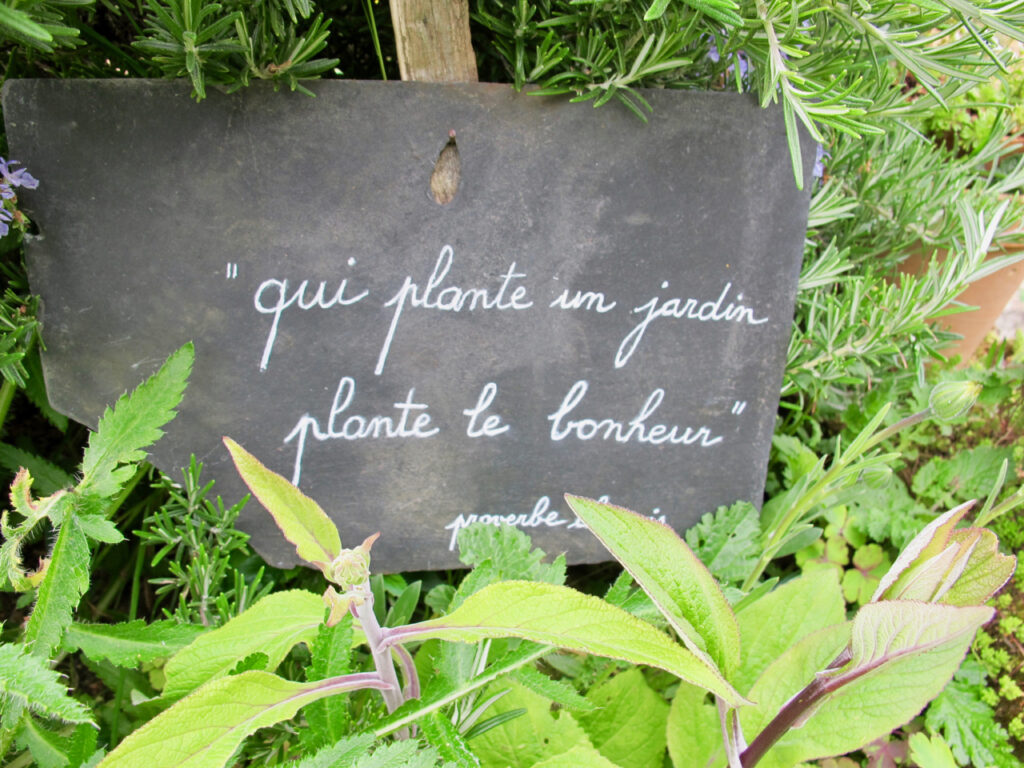 "qui plante un jardin
plante le bonheur"
proverbe